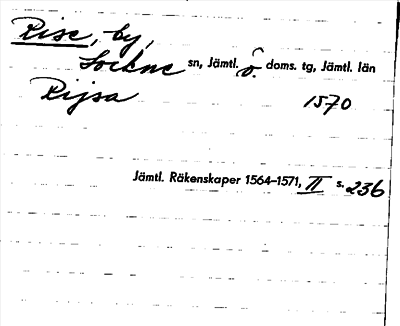 Rise, by,
Lockne sn, Jämtl. ö. doms. tg, Jämtl. län
Rijsa 1570
Jämtl. Räkenskaper 1564-1571, II s. 236